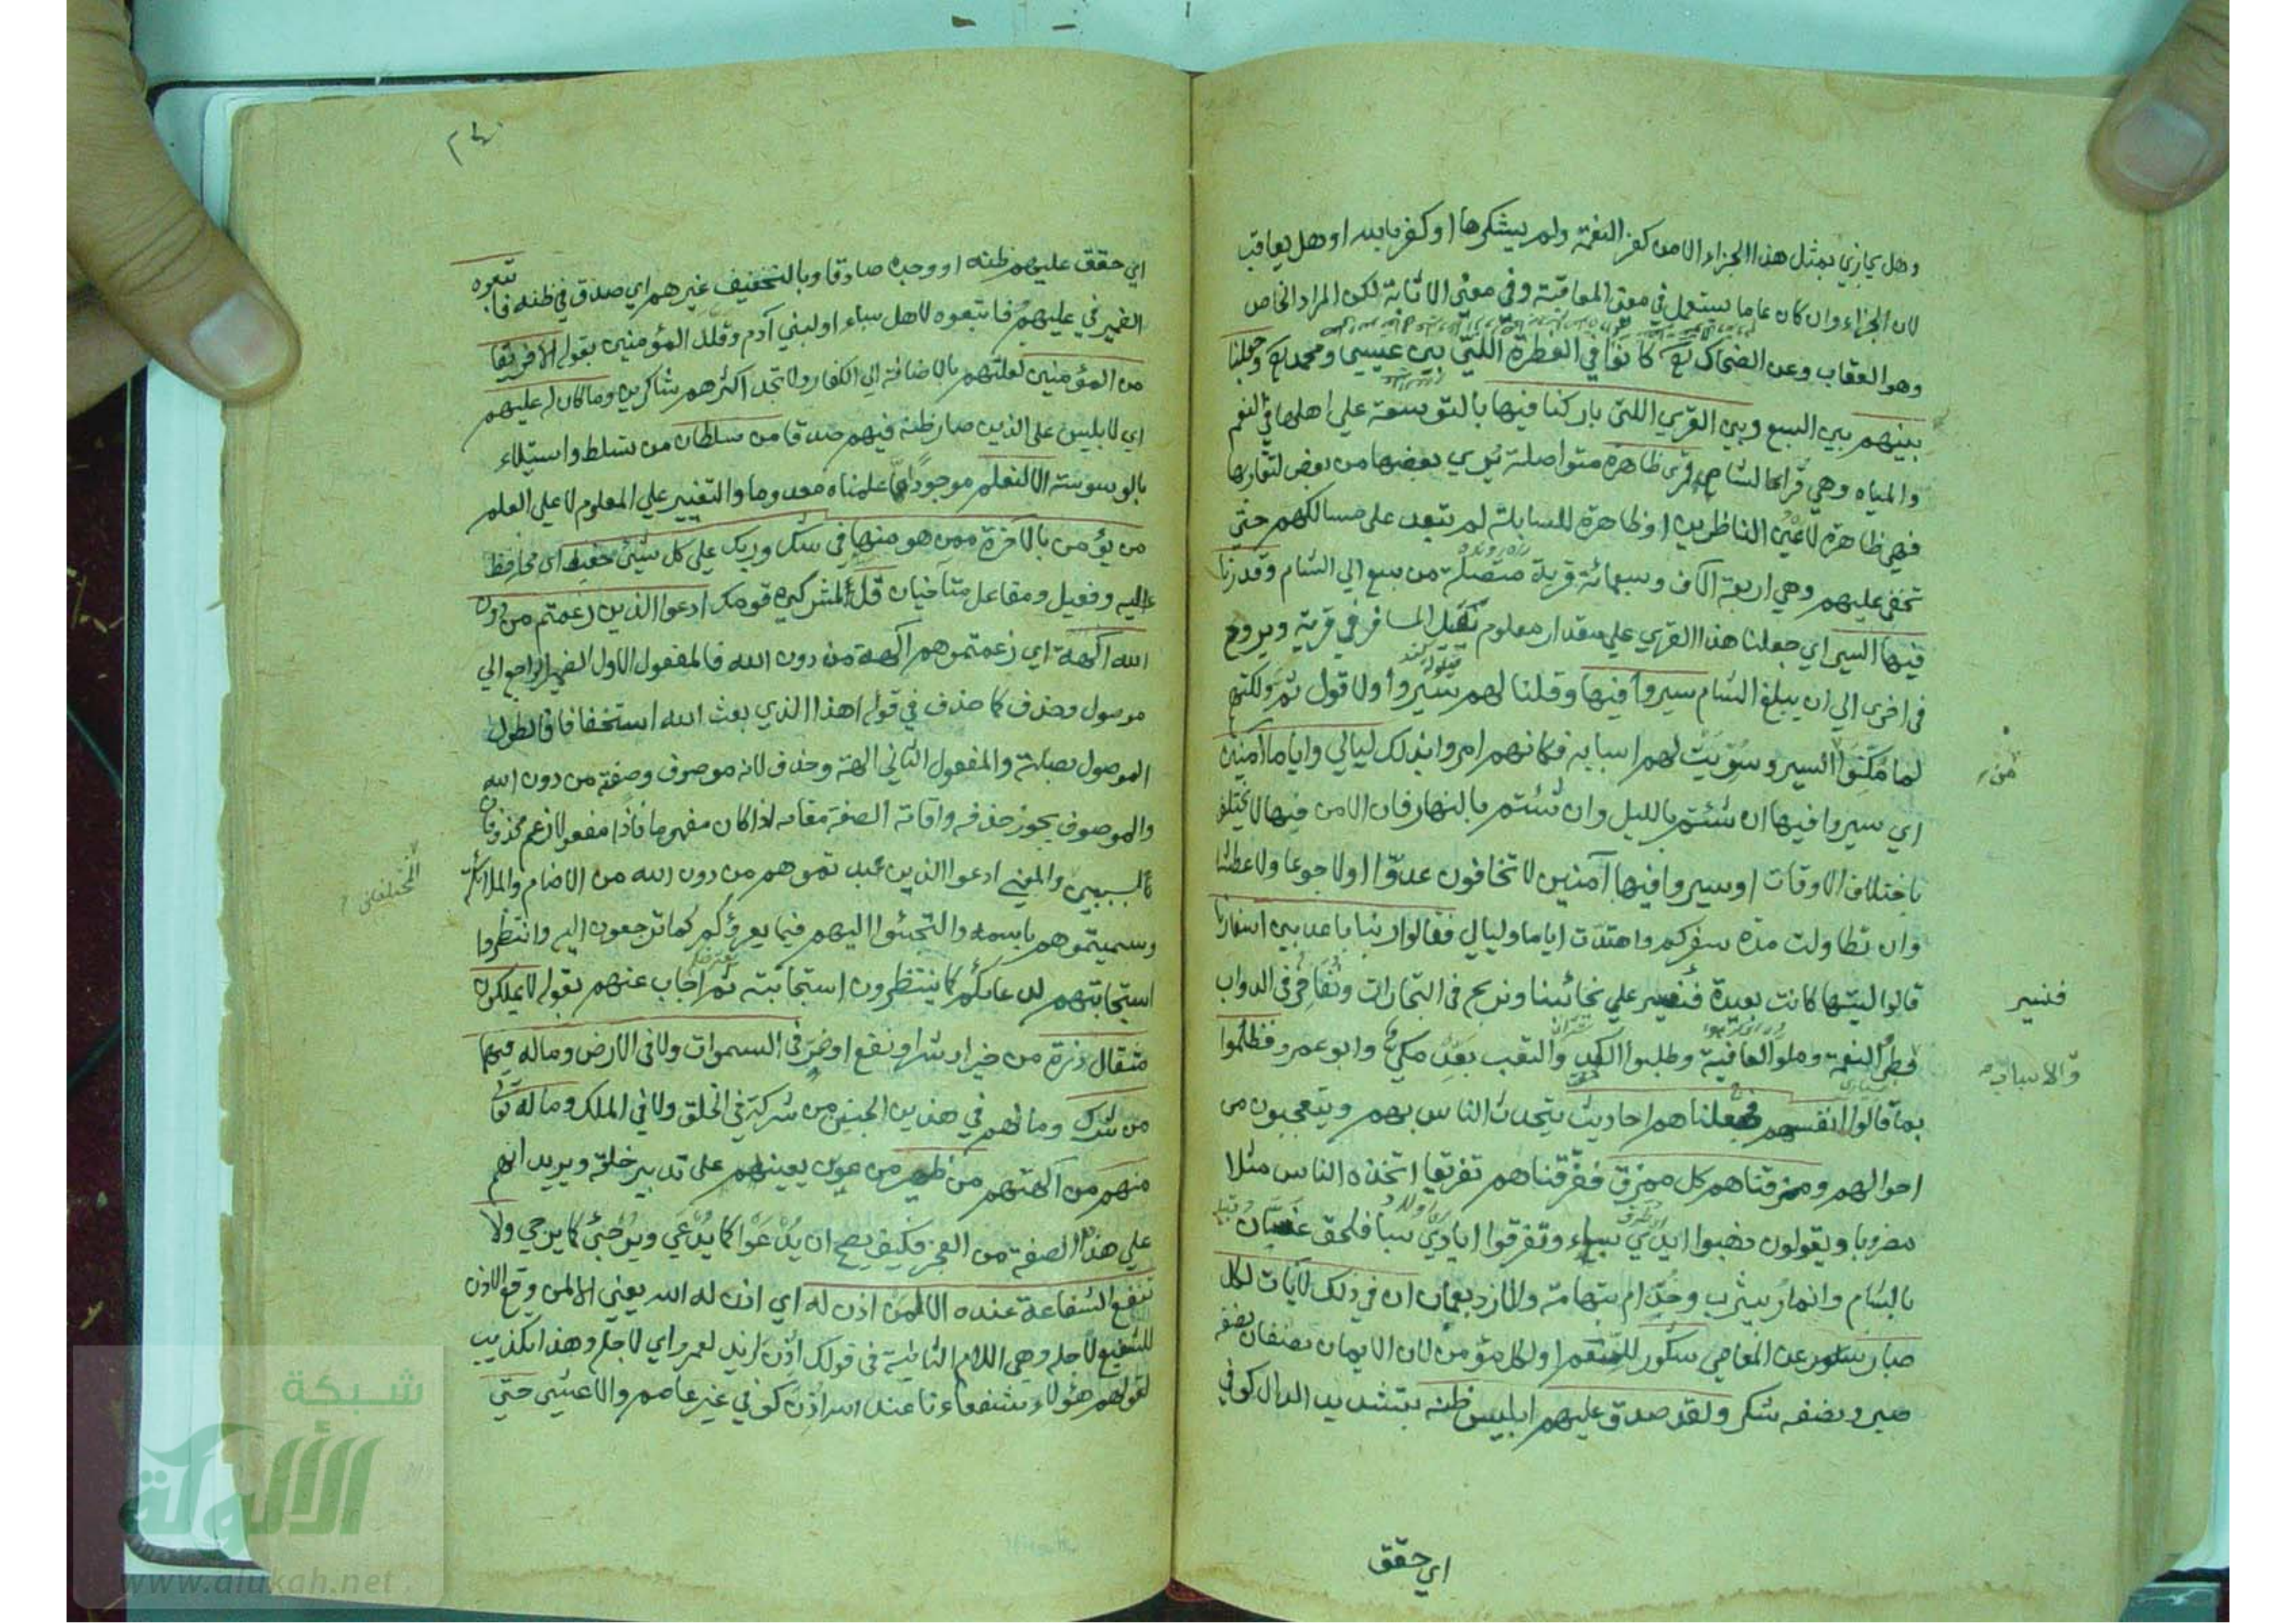 وهل يجازي بمثل هذا الجزاء الا من كفر النعمة ولم يشكرها او كفر بالله او هل يعاقب
لان الجزاء وان كان عاما يستعمل في معنى المعاقبة وفي معنى الاثابة لكن المراد الخاص
وهو العقاب وعن الضحاك كانوا في الفطرة اللتي بين عيسى ومحمد وجعلنا
بينهم بين السبع وبين القرى اللتي باركنا فيها بالتوسعة على اهلها في النعم
والمياه وهي قرى الشام قرى ظاهرة متواصلة يرى بعضها من بعض لتقاربها
فهي ظاهرة لاعين الناظرين او ظاهرة للسابلة لم تبعد على مسالكهم حتى
تخفى عليهم وهي اربعة الاف وسبعمائة قرية متصلة من سبع الى الشام وقدرنا
فيها السير اي جعلنا هذا القرى على مقدار معلوم يقيل المسافر في قرية ويروح
في اخرى الى ان يبلغ الشام سيروا فيها وقلنا لهم سيروا ولا قول ثم ولكنهم
لما مكنوا السير وسويت لهم اسبابه فكانهم امروا بذلك ليالي واياما آمنين
من
اي سيروا فيها ان شئتم بالليل وان شئتم بالنهار فان الامن فيها لا يختلف
باختلاف الاوقات او سيروا فيها آمنين لا تخافون عدوا اولا جوعا ولا عطشا
وان تطاولت مدة سفركم وامتدت اياما وليالي فقالوا ربنا باعد بين اسفارنا
قالوا ليتها كانت بعيدة فنسير على نجائبنا ونربح في التجارات ونفاخر في الدواب
فنسير
بطروا النعمة وملوا العافية وطلبوا الكد والتعب بعد مكي وابو عمرو فظلموا
والاسباب
بما قالوا انفسهم فجعلناهم احاديث يتحدث الناس بهم ويتعجبون من
احوالهم ومزقناهم كل ممزق ففرقناهم تفريقا اتخذه الناس مثلا
مضروبا ويقولون ذهبوا ايدي سباء وتفرقوا ايادي سبا فلحق غسان
بالشام وانمار بيثرب وجذام بتهامة والازد بعمان ان في ذلك لآيات لكل
صبار عن المعاصي شكور للنعم او لكل مؤمن لان الايمان نصفان نصفه
صبر ونصفه شكر ولقد صدق عليهم ابليس ظنه بتشديد الدال كوفي
اي حقق
اي حقق عليهم ظنه او وجده صادقا وبالتخفيف غيرهم اي صدق في ظنه فاتبعوه
الضمير في عليهم فاتبعوه لاهل سباء او لبني آدم وقلل المؤمنين بقوله الا فريقا
من المؤمنين لقلتهم بالاضافة الى الكفار ولا تجد اكثرهم شاكرين وما كان له عليهم
اي لابليس على الذين صار ظنه فيهم صدقا من سلطان من تسلط واستيلاء
بالوسوسة الا لنعلم موجودا ما علمناه معدوما والتغيير على المعلوم لا على العلم
من يؤمن بالاخرة ممن هو منها في شك وربك على كل شيئ حفيظ اي محافظ
عليه وفعيل ومفاعل متآخيان قل المشركي قومك ادعوا الذين زعمتم من دون
الله الهة اي زعمتموهم الهة من دون الله فالمفعول الاول الضمير الراجع الى
موصول وحذف كما حذف في قوله اهذا الذي بعث الله استخفافا لطول
الموصول بصلته والمفعول الثاني الهة وحذف لانه موصوف وصفة من دون الله
والموصوف يجوز حذفه واقامة الصفة مقامه اذا كان مفهوما فاذا مفعولا زعم محذوفان
بسببين والمعنى ادعوا الذين عبدتموهم من دون الله من الاصنام والملائكة
وسميتموهم باسمه والتجئوا اليهم فيما يعروكم كما ترجعون اليه وانتظروا
استجابتهم لدعائكم كما ينتظرون استجابته ثم اجاب عنهم بقوله لا يملكون
مثقال ذرة من خير او شر او نفع او ضر في السموات ولا في الارض وماله فيهما
من شرك وما لهم في هذين الجنسين من شركة في الخلق ولا في الملك وما له تعالى
منهم من آلهتهم من ظهير من عون يعينهم على تدبير خلقه ويريد انهم
على هذه الصفة من العجز فكيف يصح ان يدعوا كما يدعى ويرجئ كما يرجى ولا
تنفع الشفاعة عنده الا لمن اذن له اي اذن له الله يعني الا لمن وقع الاذن
للشفيع لاجله وهي اللام الثانية في قولك اذن لزيد لعمرو اي لاجله وهذا تكذيب
لقولهم هؤلاء شفعاءنا عند الله اذن كوفي غير عاصم والاعشى حتى
شبكة
الألوكة
www.alukah.net